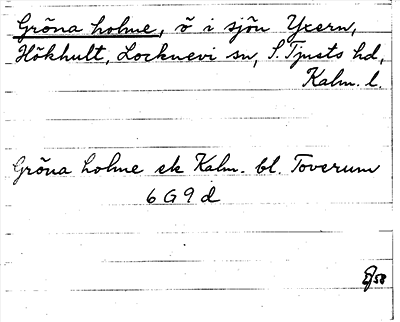 Gröna holme, ö i sjön Yxern,
Hökhult, Locknevi sn, S. Tjusts hd,
Kalm. l.
Gröna holme ek Kalm. bl. Toverum
6 G 9 d